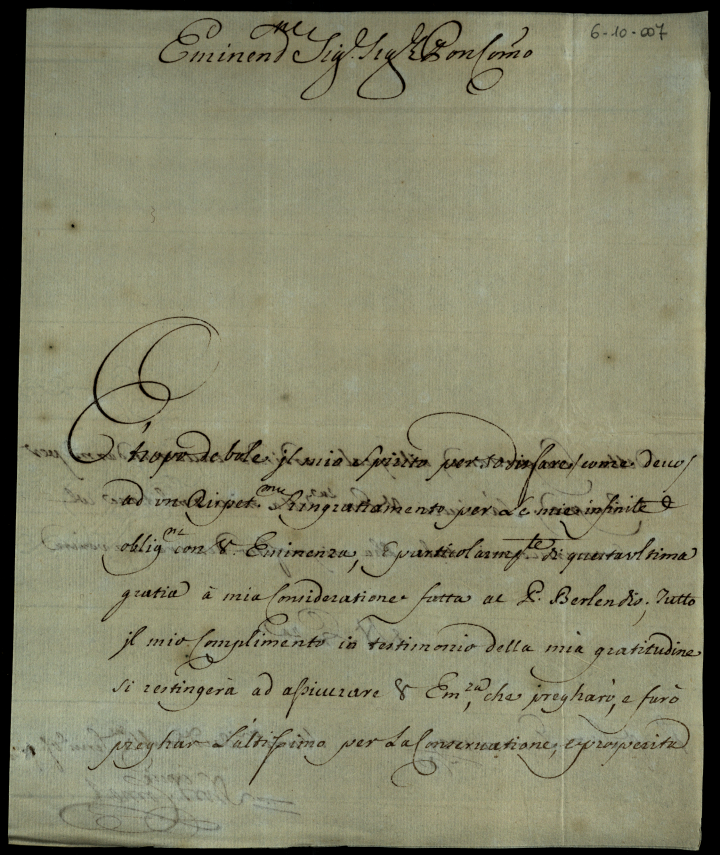 6-10-007
Eminend.mo Sig.r Sig.r Pron Com̃o
È tropo debole jl mio spirito per sodisfare (come deuo)
ad un Rispet.mo Ringratiamento per Le mie infinite
oblig.ni con V. Eminenza, e particolarm.te di questa vltima
gratia à mia Consideratione fatta al P. Berlendis; Tutto
jl mio Complimento in testimonio della mia gratitudine
si restingerà ad assicurare V Em.za, che pregharò, e farò
preghar L'altissimo per La Conseruatione, e prosperità